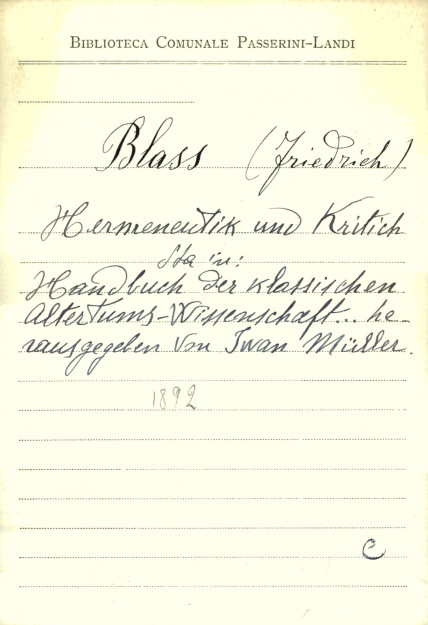 BIBLIOTECA COMUNALE PASSERINI-LANDI
Blass (Friedrich)
Hermeneutik und Kritich
Sta in:
Handbuch der klassischen
Altertums-Wissenschaft... he-
rausgegeben von Iwan Müller.
1892
C